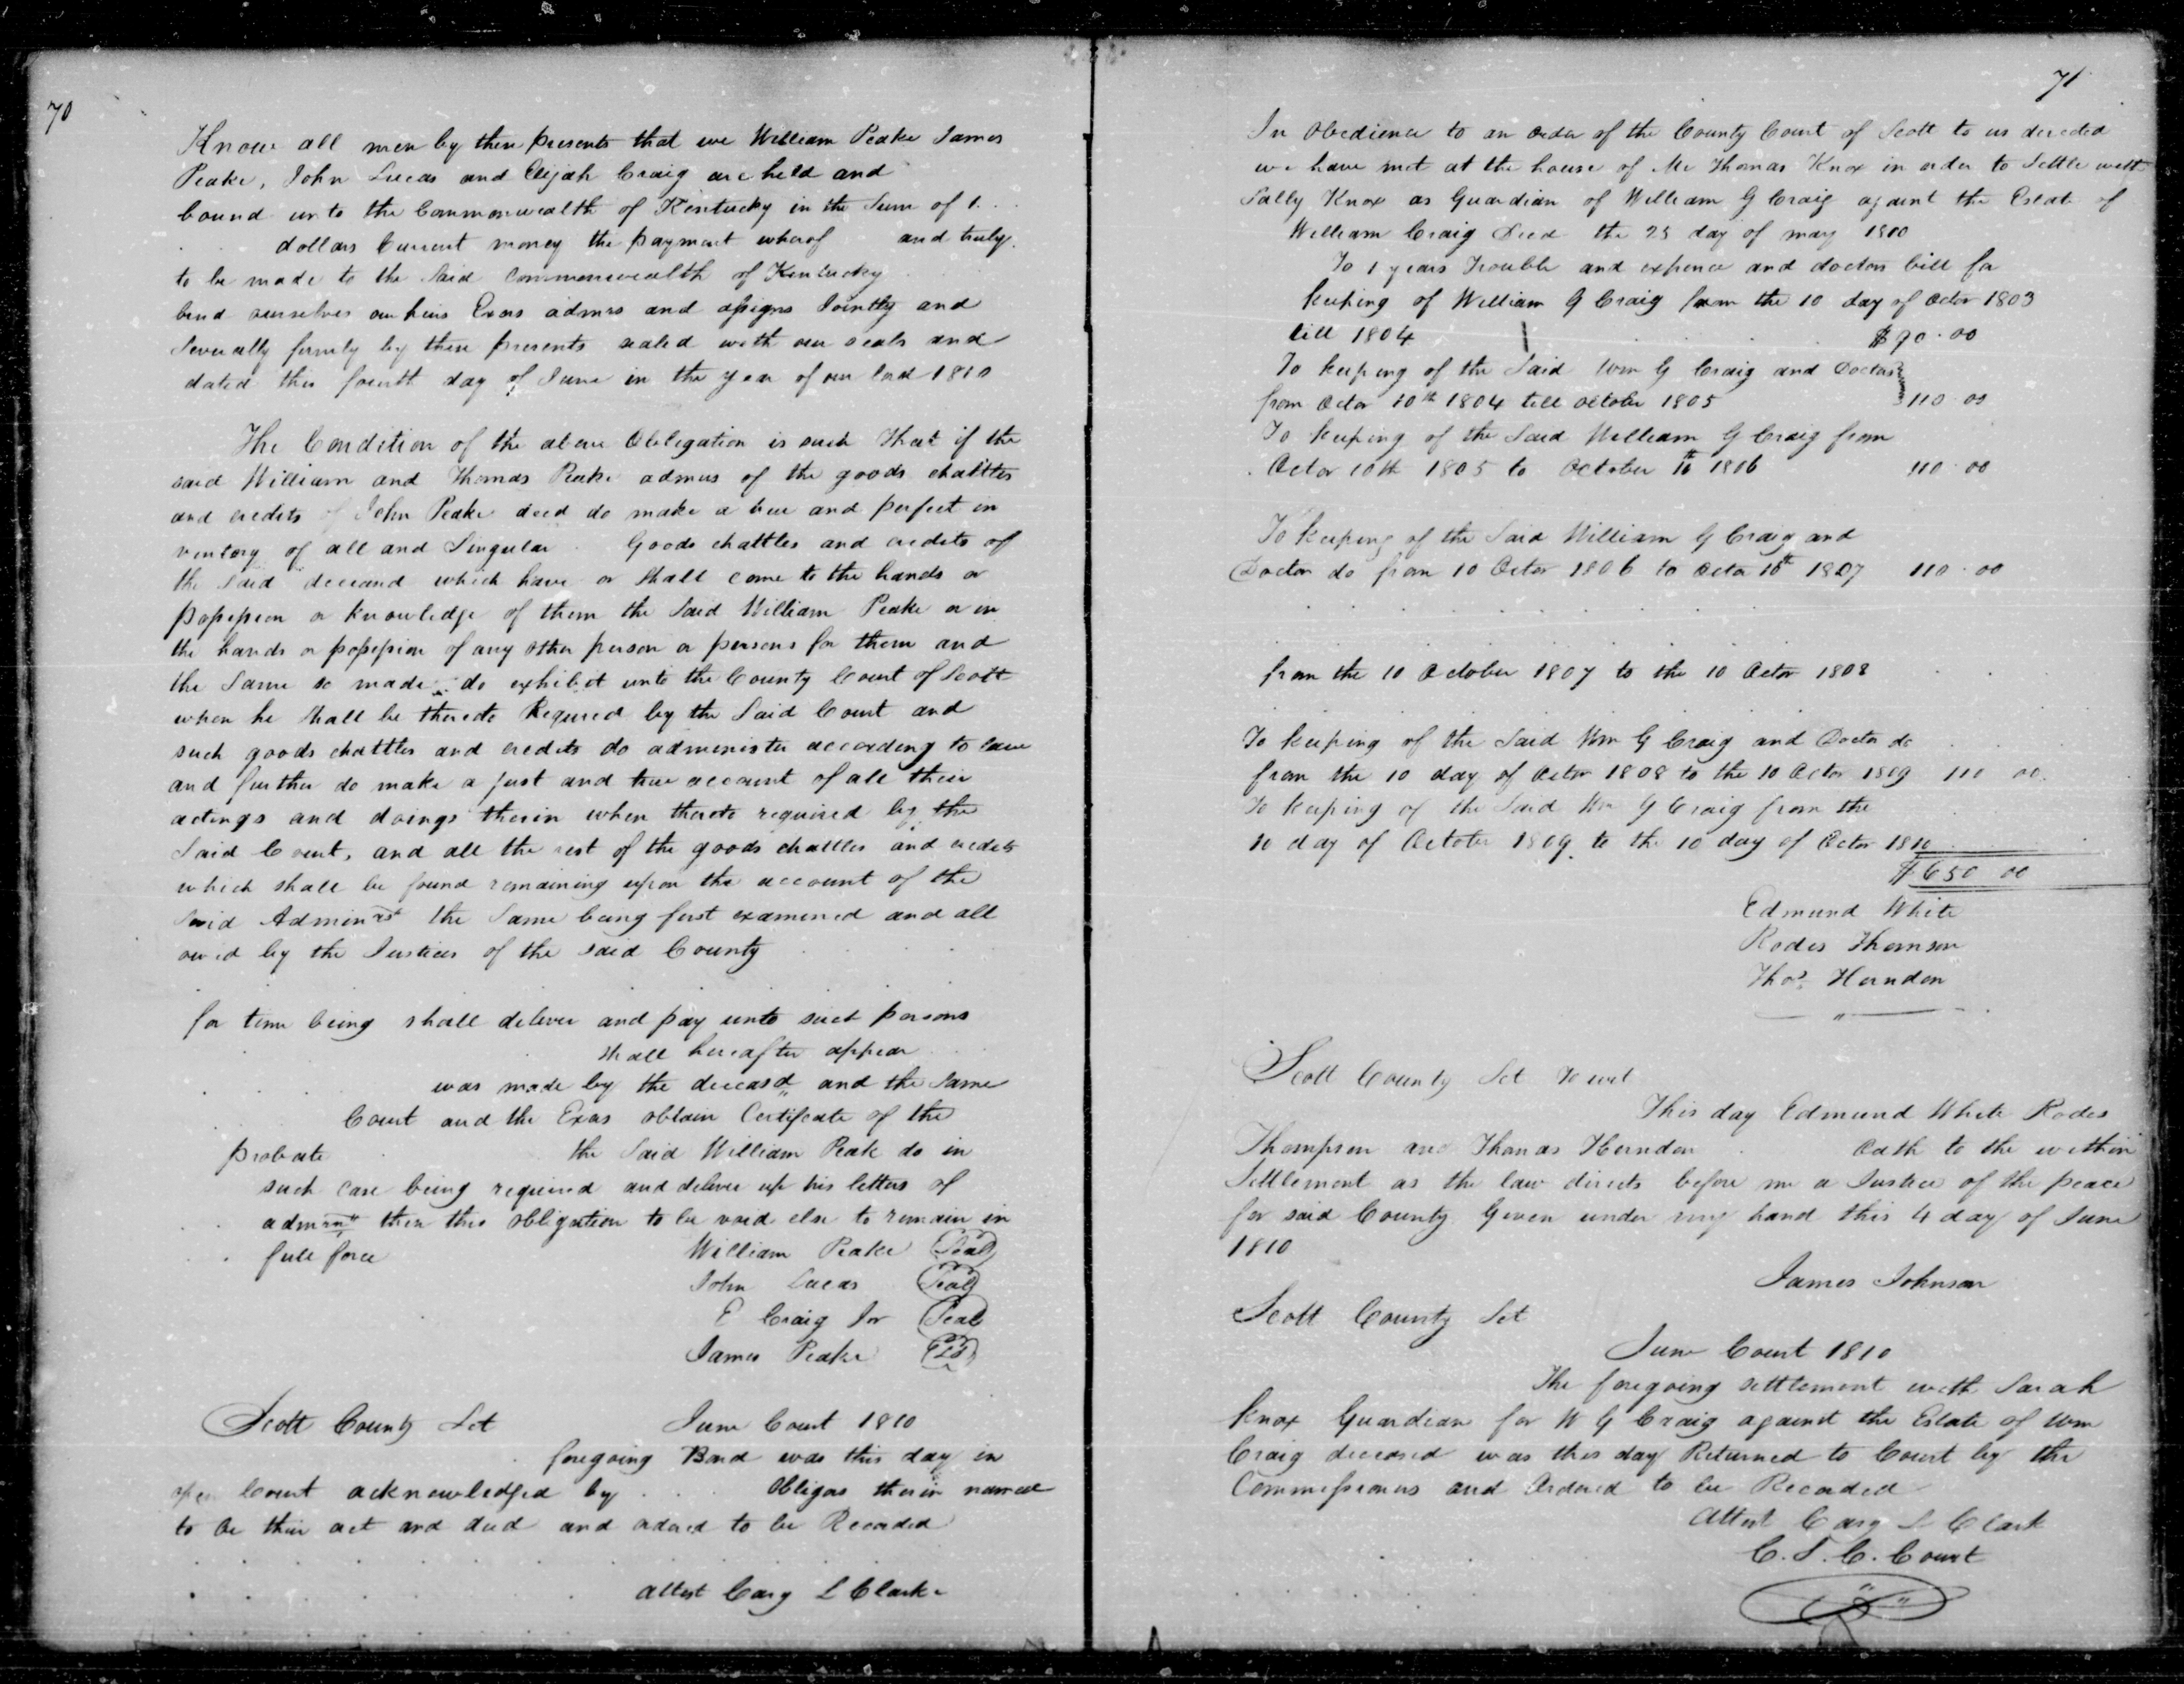 70
Know all men by these presents that we William Peake James
Peake, John Lucas and Elijah Craig are held and
bound unto the Commonwealth of Kentucky in the Sum of 1
dollars Current money the payment wherof and truly
to be made to the Said Commonwealth of Kentucky
bind ourselves our heirs Exors admrs and assigns Jointly and
Severally firmly by these presents sealed with our seals and
dated this fourth day of June in the year of our lord 1810
The Condition of the above Obligation is such That if the
said William and Thomas Peake admrs of the goods chattles
and credits of John Peake decd do make a true and perfect in
ventory of all and Singular Goods chattles and credits of
the said deceasd which have or shall come to the hands or
possession or knowledge of them the Said William Peake or in
the hands or possession of any other person or persons for them and
the Same so made do exhibit unto the County Court of Scott
when he shall be thereto Required by the Said Court and
such goods chattles and credits do administer according to law
and further do make a just and true account of all their
actings and doings therin when thereto required by the
Said Court, and all the rest of the goods chattles and credits
which shall be found remaining upon the account of the
Said Adminrst the Same being first examined and all
owed by the Justices of the said County
for time being shall deliver and pay unto such persons
shall hereafter appear
was made by the deceasd and the Same
Court and the Exors obtain Certificate of the
probate the Said William Peak do in
such case being required and deliver up his letters of
admrn then this obligation to be void else to remain in
full force William Peake Seal
John Lucas Seal
E Craig Jnr Seal
James Peake Seal
Scott County Sct June Court 1810
foregoing Bond was this day in
open Court acknowledged by Obligors therein named
to be their act and deed and ordered to be Recorded
attest Cary L Clarke
71
In Obedience to an order of the County Court of Scott to us directed
we have met at the house of Mr Thomas Knox in order to Settle with
Sally Knox as Guardian of William G Craig against the Estate of
William Craig Decd the 25 day of may 1810
To 1 years Trouble and expence and doctors bill for
keeping of William G Craig from the 10 day of Octor 1803
till 1804 $90.00
To keeping of the Said Wm G Craig and Doctors
from Octor 10th 1804 till october 1805 110.00
To keeping of the Said William G Craig from
Octor 10th 1805 to October 10th 1806 110.00
To keeping of the Said William G Craig and
Doctor do from 10 Octor 1806 to Octor 10th 1807 110.00
from the 10 October 1807 to the 10 Octor 1808
To keeping of the Said Wm G Craig and Doctor do
from the 10 day of Octor 1808 to the 10 Octor 1809 110 00
To keeping of the Said Wm G Craig from the
10 day of October 1809 to the 10 day of Octor 1810
$650 00
Edmund White
Rodes Thomson
Thos Herndon
Scott County Sct To wit
This day Edmund White Rodes
Thompson and Thomas Herndon Oath to the within
Settlement as the law directs before me a Justice of the peace
for said County Given under my hand this 4 day of June
1810
James Johnson
Scott County Sct
June Court 1810
The foregoing settlement with Sarah
Knox Guardian for W G Craig against the Estate of Wm
Craig deceased was this day Returned to Court by the
Commissioners and Ordered to be Recorded
Attest Cary L Clark
C.S.C. Court